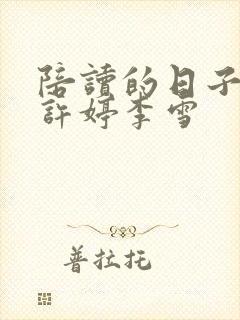 陪讀的日子
許婷李雪
普拉托